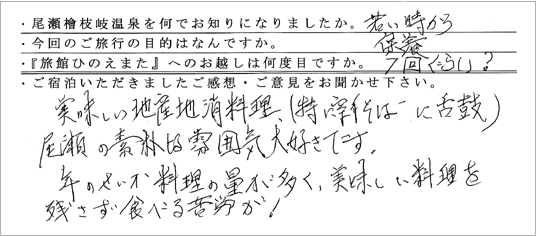 ・尾瀬檜枝岐温泉を何でお知りになりましたか。若い時から
・今回のご旅行の目的はなんですか。保養
・『旅館ひのえまた』へのお越しは何度目ですか。7回ぐらい？
・ご宿泊いただきましたご感想・ご意見をお聞かせ下さい。
美味しい地産地消料理、(特に そばに舌鼓)
尾瀬の素朴な雰囲気大好きです。
年のせいか料理の量が多く、美味しい料理を
残さず食べる苦労が！